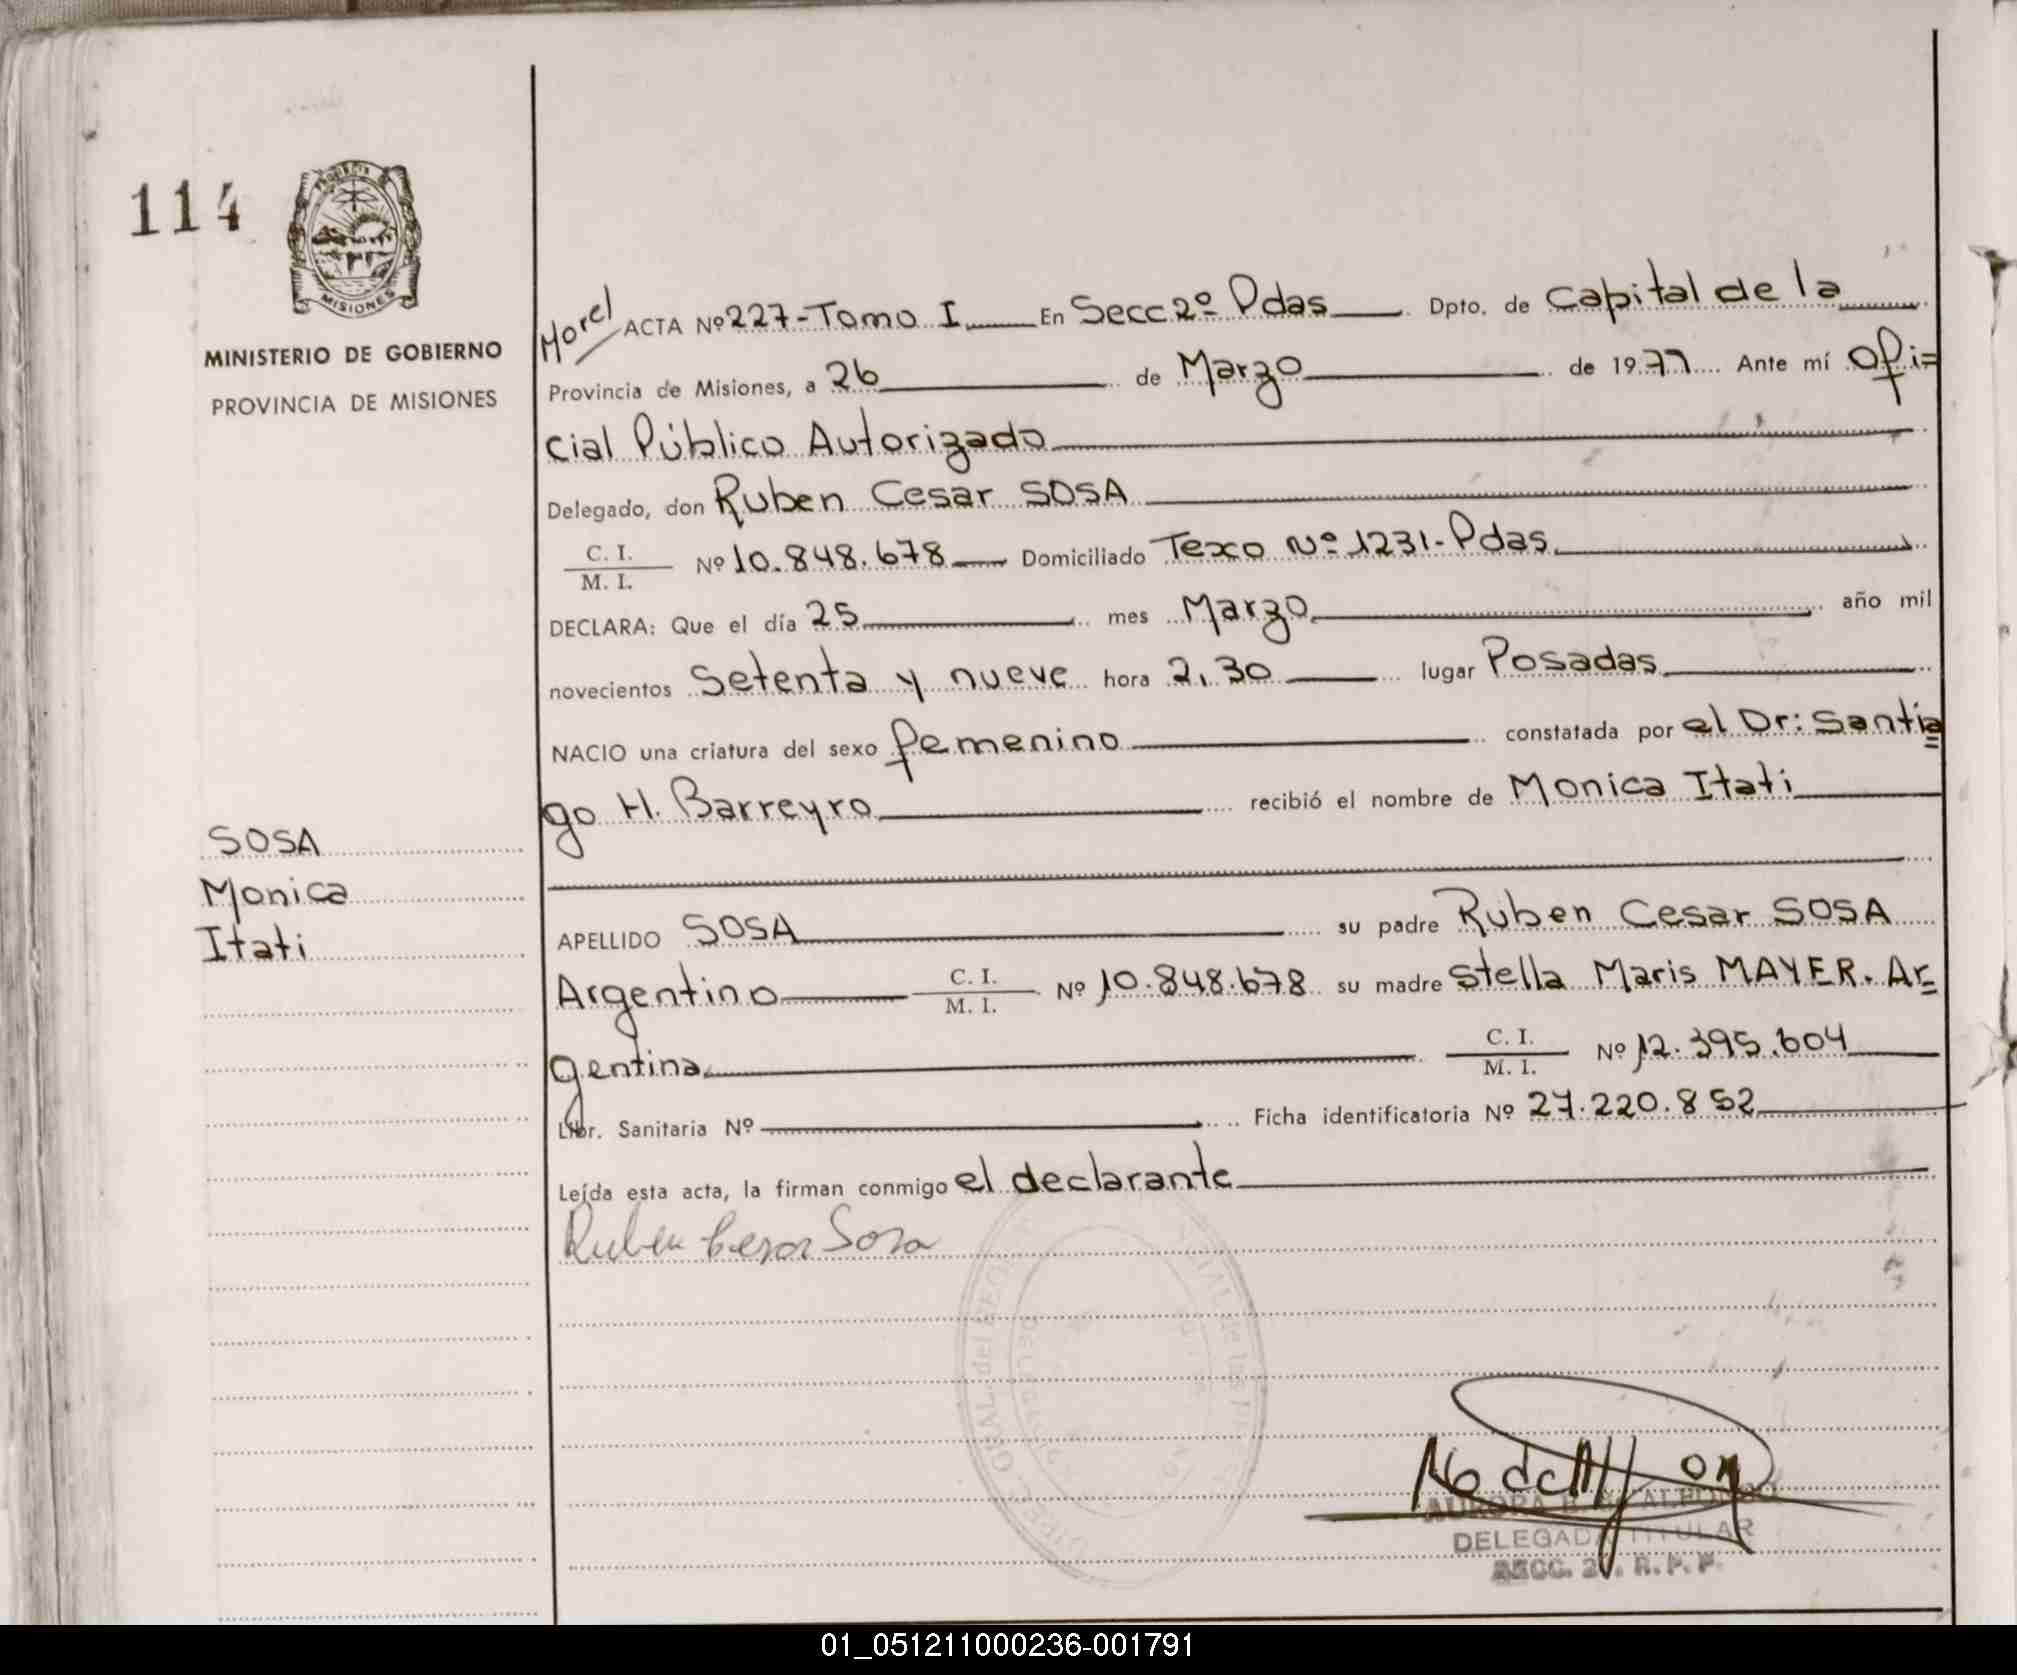 114
MISIONES
MINISTERIO DE GOBIERNO
PROVINCIA DE MISIONES
ACTA Nº 227-Tomo I En Secc 2º Pdas Dpto. de Capital de la
Provincia de Misiones, a 26 de Marzo de 1979 Ante mí Ofi=
cial Público Autorizado
Delegado, don Ruben Cesar SOSA
C. I.
M. I.
Nº 10.848.678 Domiciliado Texo Nº 1231-Pdas
DECLARA: Que el día 25 mes Marzo año mil
novecientos Setenta y nueve hora 2,30 lugar Posadas
NACIO una criatura del sexo femenino constatada por el Dr: Santia
go H. Barreyro recibió el nombre de Monica Itati
SOSA
Monica
Itati
APELLIDO SOSA su padre Ruben Cesar SOSA
Argentino C. I. M. I. Nº 10.848.678 su madre Stella Maris MAYER. Ar=
gentina C. I. M. I. Nº 12.395.604
Libr. Sanitaria Nº Ficha identificatoria Nº 27.220.852
Leída esta acta, la firman conmigo el declarante
Ruben Cesar Sosa
DELEGADA TITULAR
SECC. 2ª. R. P. P.
01_051211000236-001791